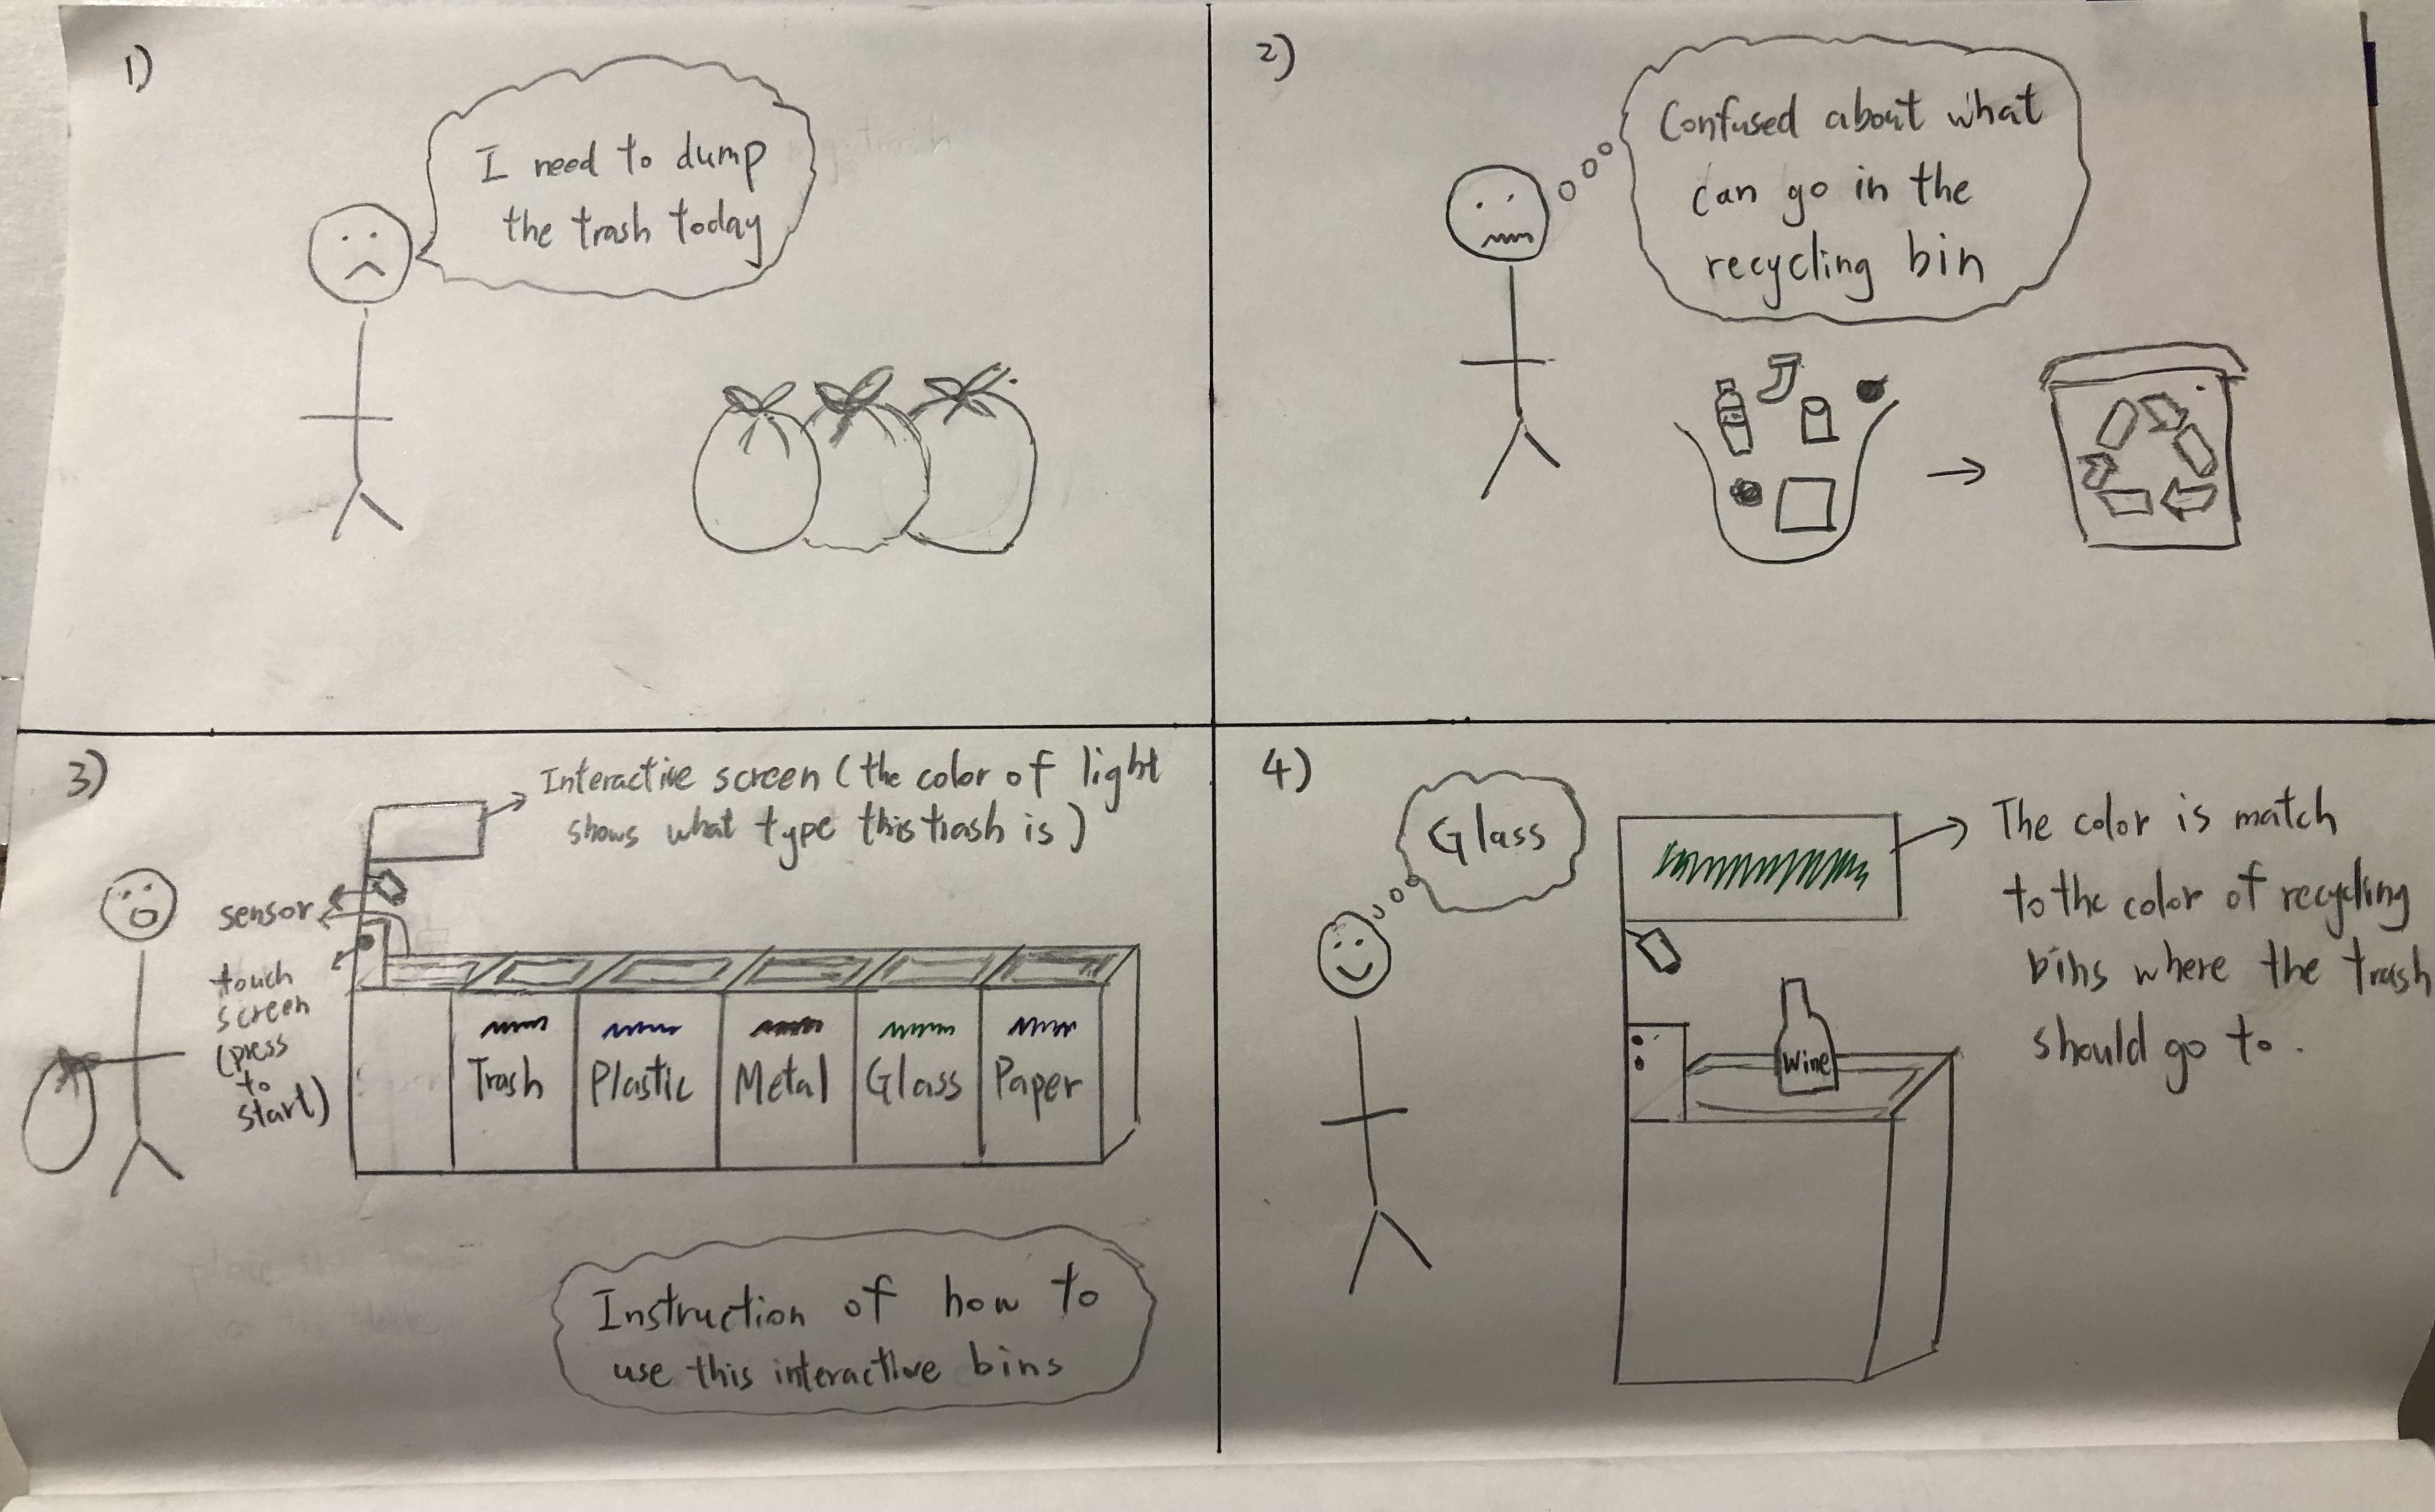 1)
I need to dump
the trash today
2)
Confused about what
can go in the
recycling bin
3)
Interactive screen (the color of light
shows what type this trash is)
sensor
touch
screen
(press
to
start)
Trash Plastic Metal Glass Paper
Instruction of how to
use this interactive bins
4)
Glass
The color is match
to the color of recycling
bins where the trash
should go to.
Wine